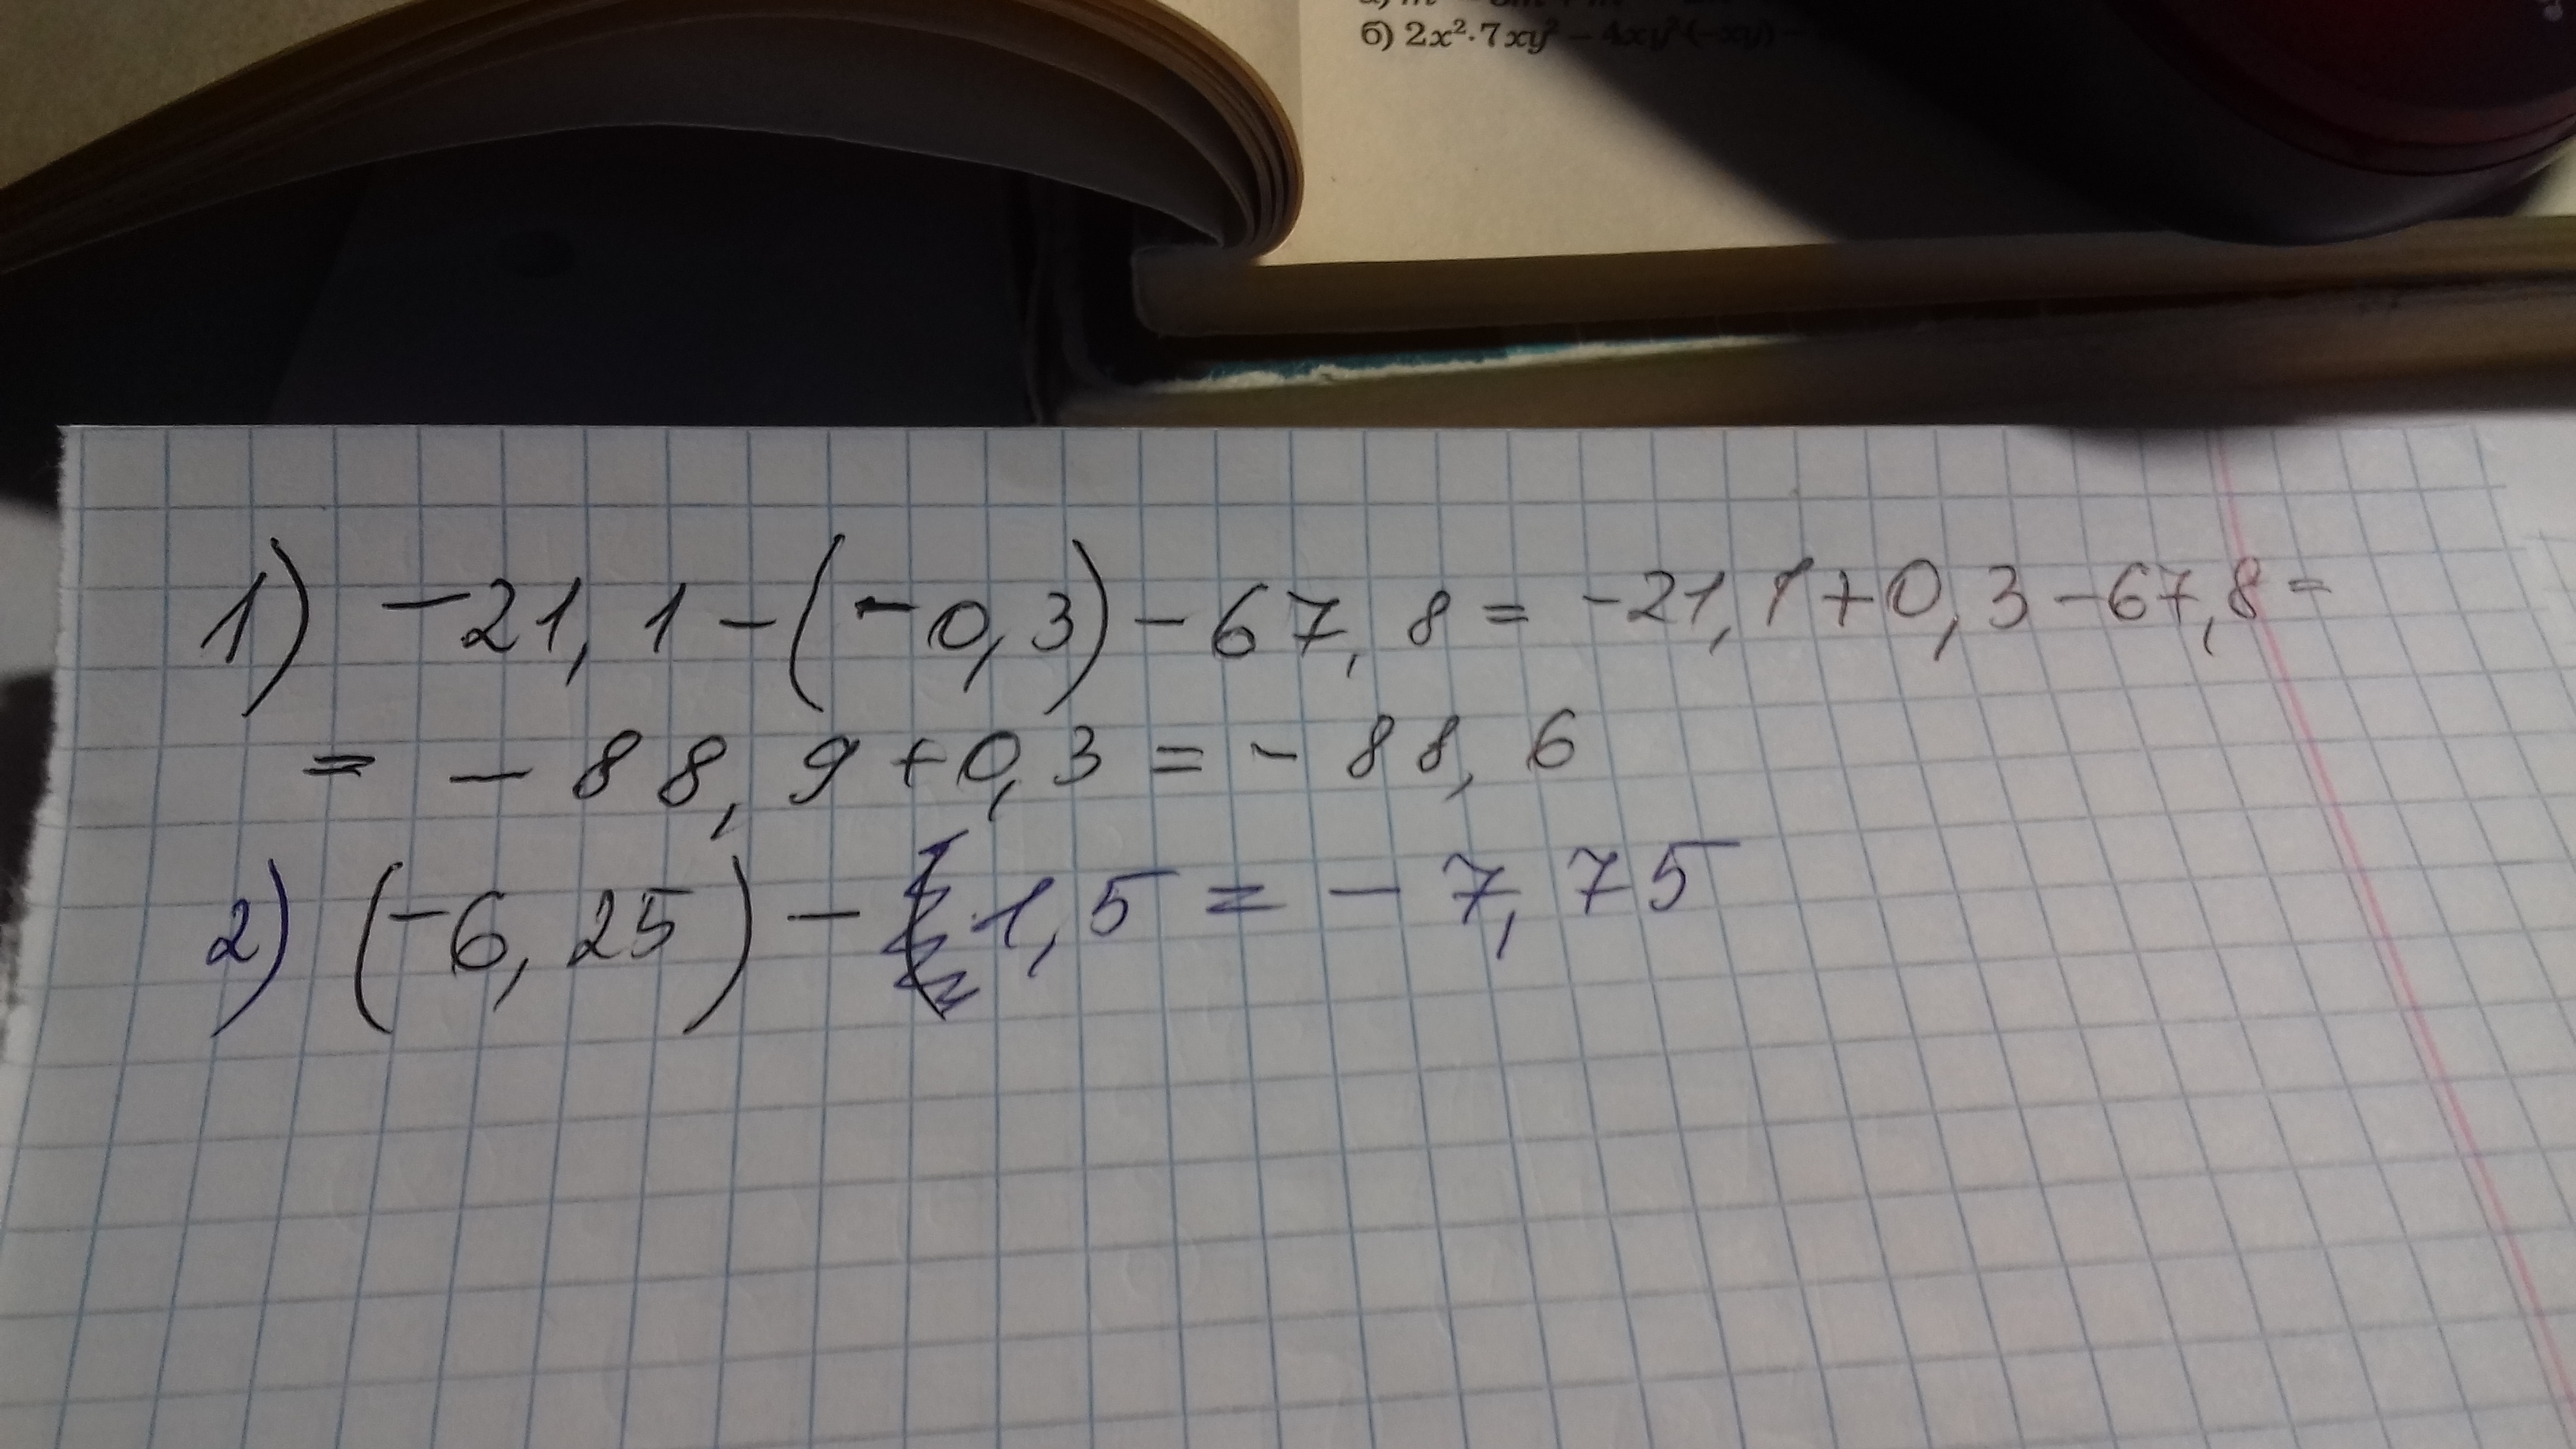 б) 2x²·7xy² − 4xy²·(−xy) −
1) −21,1−(−0,3)−67,8= −21,1+0,3−67,8=
= −88,9+0,3=−88,6
2) (−6,25)− 1,5=−7,75